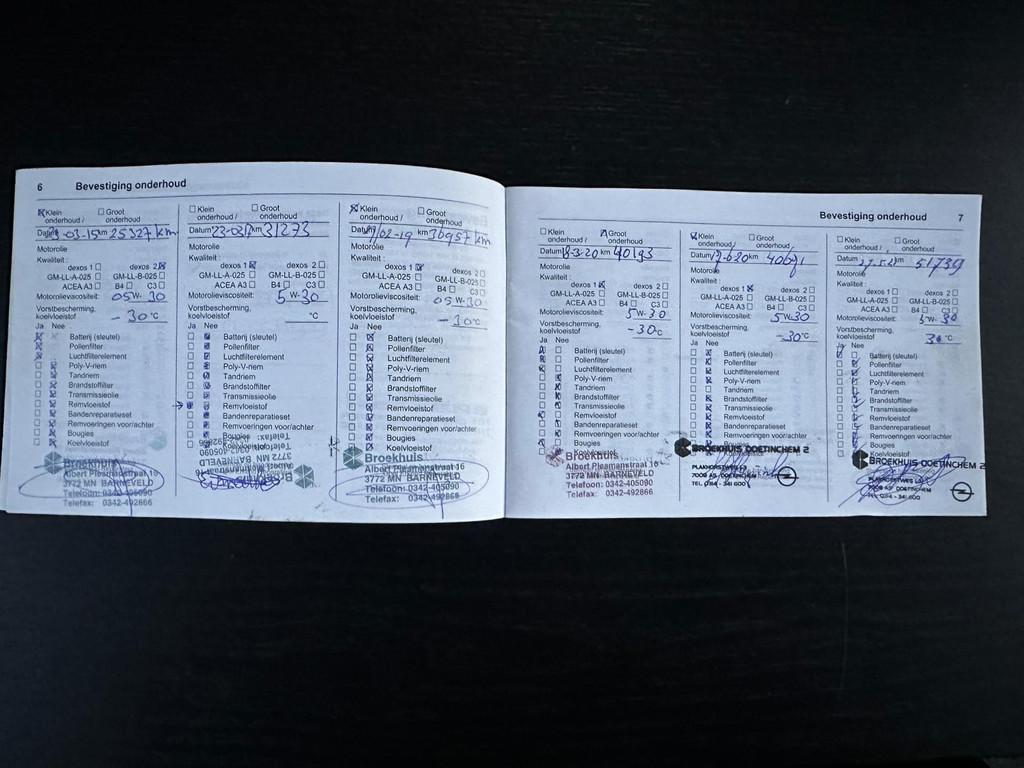 6 Bevestiging onderhoud
Klein onderhoud / Groot onderhoud
Datum 03-15 km 25327 km
Motorolie
Kwaliteit:
dexos 1 dexos 2
GM-LL-A-025 GM-LL-B-025
ACEA A3 B4 C3
Motorolieviscositeit: 05W-30
Vorstbescherming, koelvloeistof -30°C
Ja Nee
Batterij (sleutel)
Pollenfilter
Luchtfilterelement
Poly-V-riem
Tandriem
Brandstoffilter
Transmissieolie
Remvloeistof
Bandenreparatieset
Remvoeringen voor/achter
Bougies
Koelvloeistof
Broekhuis
Albert Plesmanstraat 16
3772 MN BARNEVELD
Telefoon: 0342-405090
Telefax: 0342-492866
Klein onderhoud / Groot onderhoud
Datum km 31273
Motorolie
Kwaliteit:
dexos 1 dexos 2
GM-LL-A-025 GM-LL-B-025
ACEA A3 B4 C3
Motorolieviscositeit: 5W-30
Vorstbescherming, koelvloeistof °C
Ja Nee
Batterij (sleutel)
Pollenfilter
Luchtfilterelement
Poly-V-riem
Tandriem
Brandstoffilter
Transmissieolie
Remvloeistof
Bandenreparatieset
Remvoeringen voor/achter
Bougies
Koelvloeistof
3772 MN BARNEVELD
Klein onderhoud / Groot onderhoud
Datum 02-19 km 36957 km
Motorolie
Kwaliteit:
dexos 1 dexos 2
GM-LL-A-025 GM-LL-B-025
ACEA A3 B4 C3
Motorolieviscositeit: 05W-30
Vorstbescherming, koelvloeistof -30°C
Ja Nee
Batterij (sleutel)
Pollenfilter
Luchtfilterelement
Poly-V-riem
Tandriem
Brandstoffilter
Transmissieolie
Remvloeistof
Bandenreparatieset
Remvoeringen voor/achter
Bougies
Koelvloeistof
Broekhuis
Albert Plesmanstraat 16
3772 MN BARNEVELD
Telefoon: 0342-405090
Telefax: 0342-492866
Bevestiging onderhoud 7
Klein onderhoud / Groot onderhoud
Datum 18-3-20 km 40193
Motorolie
Kwaliteit:
dexos 1 dexos 2
GM-LL-A-025 GM-LL-B-025
ACEA A3 B4 C3
Motorolieviscositeit: 5W-30
Vorstbescherming, koelvloeistof -30°C
Ja Nee
Batterij (sleutel)
Pollenfilter
Luchtfilterelement
Poly-V-riem
Tandriem
Brandstoffilter
Transmissieolie
Remvloeistof
Bandenreparatieset
Remvoeringen voor/achter
Bougies
Koelvloeistof
Broekhuis
Albert Plesmanstraat 16
3772 MN BARNEVELD
Telefoon: 0342-405090
Telefax: 0342-492866
Klein onderhoud / Groot onderhoud
Datum km
Motorolie
Kwaliteit:
dexos 1 dexos 2
GM-LL-A-025 GM-LL-B-025
ACEA A3 B4 C3
Motorolieviscositeit: 5W30
Vorstbescherming, koelvloeistof -30°C
Ja Nee
Batterij (sleutel)
Pollenfilter
Luchtfilterelement
Poly-V-riem
Tandriem
Brandstoffilter
Transmissieolie
Remvloeistof
Bandenreparatieset
Remvoeringen voor/achter
Bougies
BROEKHUIS DOETINCHEM 2
TEL. 0314 - 341 600
Klein onderhoud / Groot onderhoud
Datum km 51739
Motorolie
Kwaliteit:
dexos 1 dexos 2
GM-LL-A-025 GM-LL-B-025
ACEA A3 B4 C3
Motorolieviscositeit: 5W-30
Vorstbescherming, koelvloeistof 30°C
Ja Nee
Batterij (sleutel)
Pollenfilter
Luchtfilterelement
Poly-V-riem
Tandriem
Brandstoffilter
Transmissieolie
Remvloeistof
Bandenreparatieset
Remvoeringen voor/achter
Bougies
Koelvloeistof
BROEKHUIS DOETINCHEM 2
TEL. 0314 - 341 600